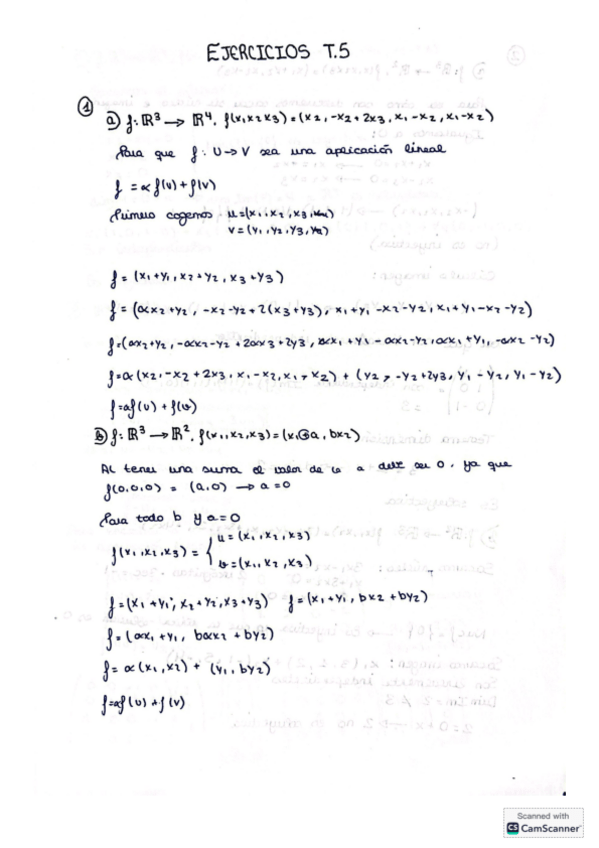 EJERCICIOS T.5
①
a) f: ℝ³ → ℝ⁴. f(x₁x₂x₃)=(x₂, -x₂+2x₃, x₁-x₂, x₁-x₂)
Para que f: U→V sea una aplicación lineal
f = αf(u)+f(v)
Primero cogemos u=(x₁,x₂,x₃
v=(y₁,y₂,y₃
f=(x₁+y₁, x₂+y₂, x₃+y₃)
f=(αx₂+y₂, -x₂-y₂+2(x₃+y₃), x₁+y₁-x₂-y₂, x₁+y₁-x₂-y₂)
f=(αx₂+y₂, -αx₂-y₂+2αx₃+2y₃, αx₁+y₁-αx₂-y₂, αx₁+y₁, -αx₂-y₂)
f=α(x₂,-x₂+2x₃, x₁-x₂, x₁, x₂) + (y₂, -y₂+2y₃, y₁-y₂, y₁-y₂)
f=αf(u)+f(v)
b) f: ℝ³ → ℝ². f(x₁,x₂,x₃)=(x₁⊕a, bx₂)
Al tener una suma el valor de a debe ser 0, ya que
f(0,0,0) = (a,0) → a=0
Para todo b y a=0
f(x₁,x₂,x₃) = { u=(x₁,x₂,x₃)
v=(x₁,x₂,x₃)
f=(x₁+y₁, x₂+y₂, x₃+y₃) f=(x₁+y₁, bx₂+by₂)
f=(αx₁+y₁, bαx₂+by₂)
f=α(x₁,x₂)+(y₁,by₂)
f=αf(u)+f(v)
Scanned with
CS CamScanner